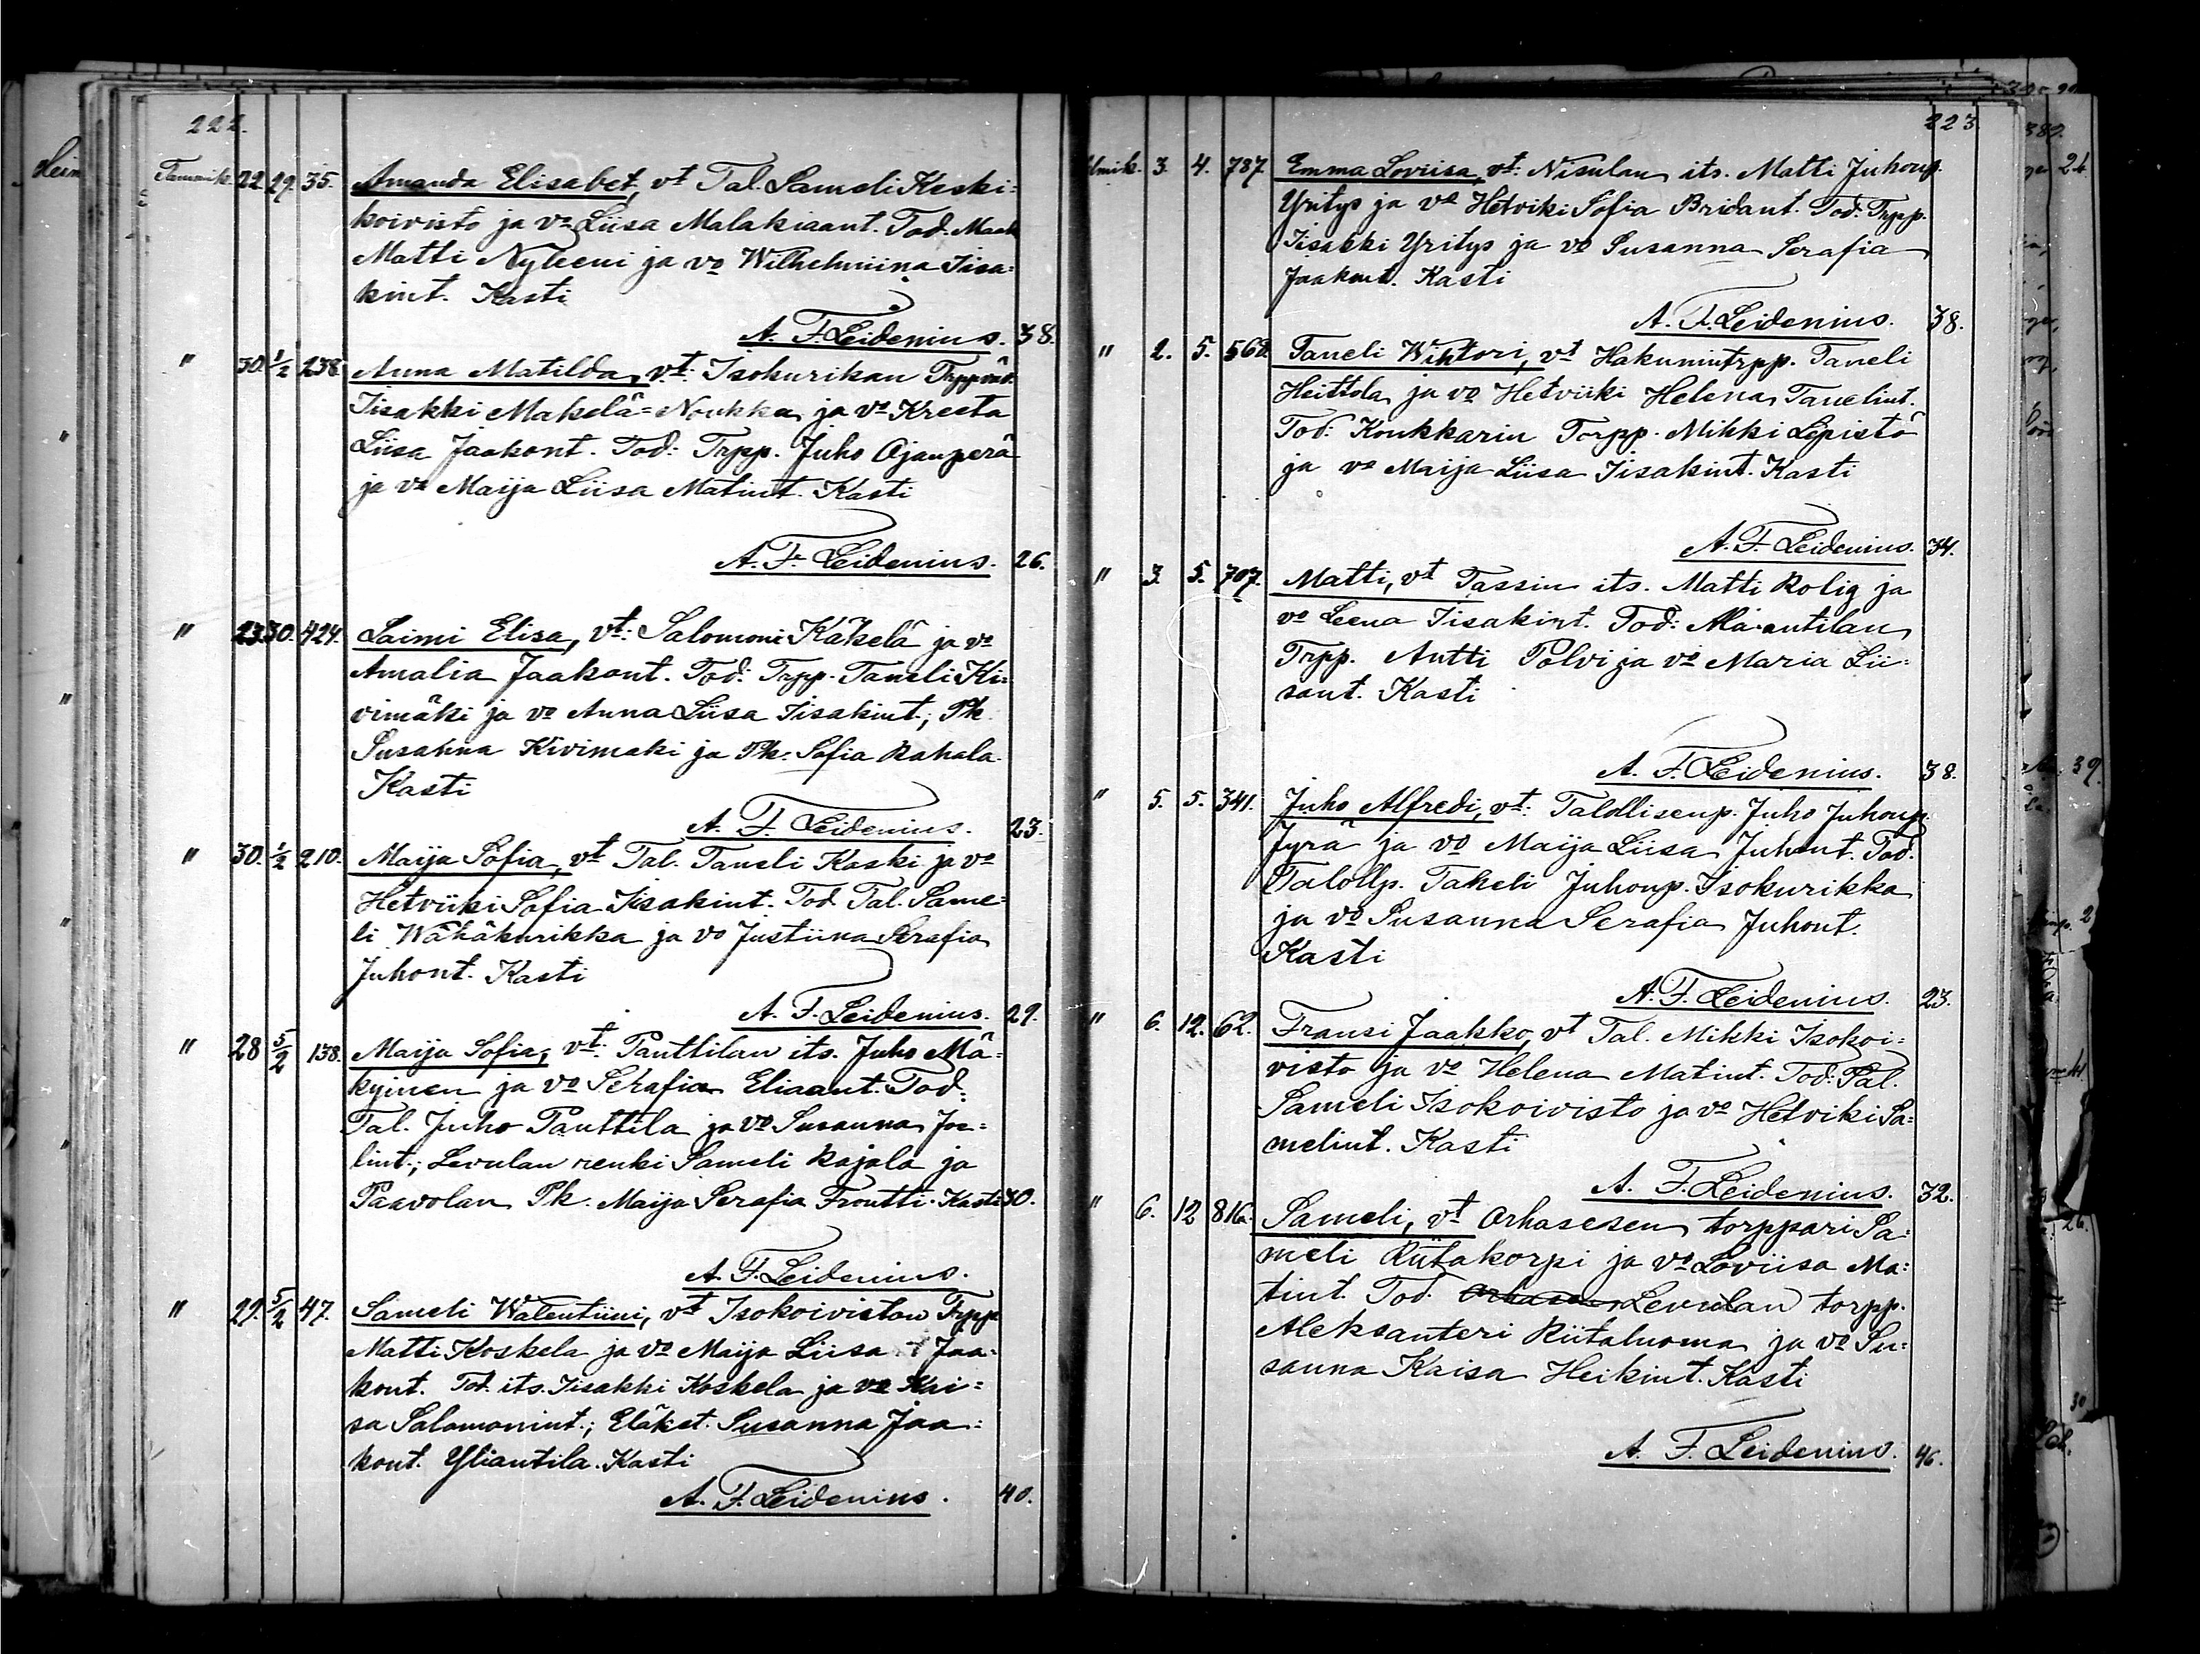 222.
Tammik. 22. 29. 35. Amanda Elisabet, vt Tal. Sameli Keski=
koivisto ja vo Liisa Malakiaant. Tod. Maak
Matti Nyleeni ja vo Wilhelmiina Iisa=
kint. Kasti
A. F. Leidenius. 38.
" 30. 1/2 238. Anna Matilda, vt: Isokurikan Trppväv.
Iisakki Makelä=Noukka ja vo Kreeta
Liisa Jaakont. Tod: Trpp. Juho Ojanperä
ja vo Maija Liisa Matint. Kasti
A. F. Leidenius. 26.
" 23. 30. 424. Laimi Elisa, vt: Salomoni Käkelä ja vo
Amalia Jaakont. Tod: Trpp. Taneli Ki=
vimäki ja vo Anna Liisa Iisakint.; Pk.
Susanna Kivimaki ja Pk. Sofia Rahala.
Kasti
A. F. Leidenius. 23.
" 30. 1/2 210. Maija Sofia, vt Tal. Taneli Kaski ja vo
Hetviiki Sofia Iisakint. Tod. Tal. Same=
li Wähäkurikka ja vo Justiina Serafia
Juhont. Kasti
A. F. Leidenius. 29.
" 28 5/2 138. Maija Sofia, vt: Panttilan its. Juho Mä=
kyinen ja vo Serafia Eliaant. Tod:
Tal. Juho Panttila ja vo Susanna Joe=
lint.; Levulan renki Sameli Rajala ja
Paavolan Pk. Maija Serafia Frontti. Kasti 30.
A. F. Leidenius.
" 29. 5/2 47. Sameli Walentiini, vt Isokoiviston Trpp
Matti Koskela ja vo Maija Liisa Jaa=
kont. Tod. its. Iisakki Koskela ja vo Kai=
sa Salomonint.; Eläket. Susanna Jaa=
kont. Yliantila. Kasti
A. F. Leidenius. 40.
223
Helmik. 3. 4. 787. Emma Loviisa, vt: Nisulan its. Matti Juhonp.
Yritys ja vo Hetviki Sofia Bridant. Tod: Trpp.
Iisakki Yritys ja vo Susanna Serafia
Jaakont. Kasti
A. F. Leidenius. 38.
" 2. 5. 568. Taneli Wihtori, vt Hakunintrpp. Taneli
Heittola ja vo Hetviiki Helena Tanelint.
Tod: Konkkarin Torpp. Mikki Lepistö
ja vo Maija Liisa Iisakint. Kasti
A. F. Leidenius. 34.
" 3. 5. 707. Matti, vt Tassin its. Matti Rolig ja
vo Leena Iisakint. Tod: Ala-antilan
Trpp. Antti Polvi ja vo Maria Lii=
sant. Kasti
A. F. Leidenius. 38.
" 5. 5. 341. Juho Alfredi, vt: Talollisenp. Juho Juhonp.
Jyrä ja vo Maija Liisa Juhont. Tod.
Talollp. Taneli Juhonp. Isokurikka
ja vo Susanna Serafia Juhont.
Kasti
A. F. Leidenius. 23.
" 6. 12. 62. Fransi Jaakko, vt Tal. Mikki Isokoi=
visto ja vo Helena Matint. Tod: Tal.
Sameli Isokoivisto ja vo Hetviki Sa=
melint. Kasti
A. F. Leidenius. 32.
" 6. 12 816. Sameli, vt Orhasesen torppari Sa=
meli Riitakorpi ja vo Loviisa Ma=
tint. Tod. Levulan torpp.
Aleksanteri Riitaluoma ja vo Su=
sanna Kaisa Heikint. Kasti
A. F. Leidenius. 46.